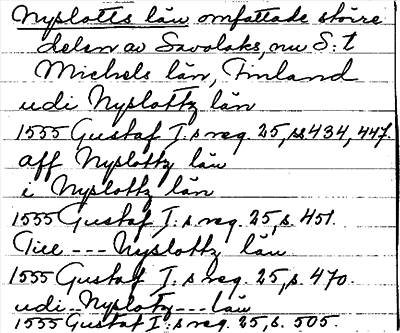 Nyslotts län omfattade större
delen av Savolaks, nu S:t
Michels län, Finland
udi Nyslottz län
1555 Gustaf I:s reg. 25, ss 434, 447.
aff Nyslottz län
i Nyslottz län
1555 Gustaf I:s reg. 25, s. 451.
Till --- Nyslottz län
1555 Gustaf I:s reg. 25, s. 470.
udi -- Nyslotz --- län
1555 Gustaf I:s reg. 25, s. 505.